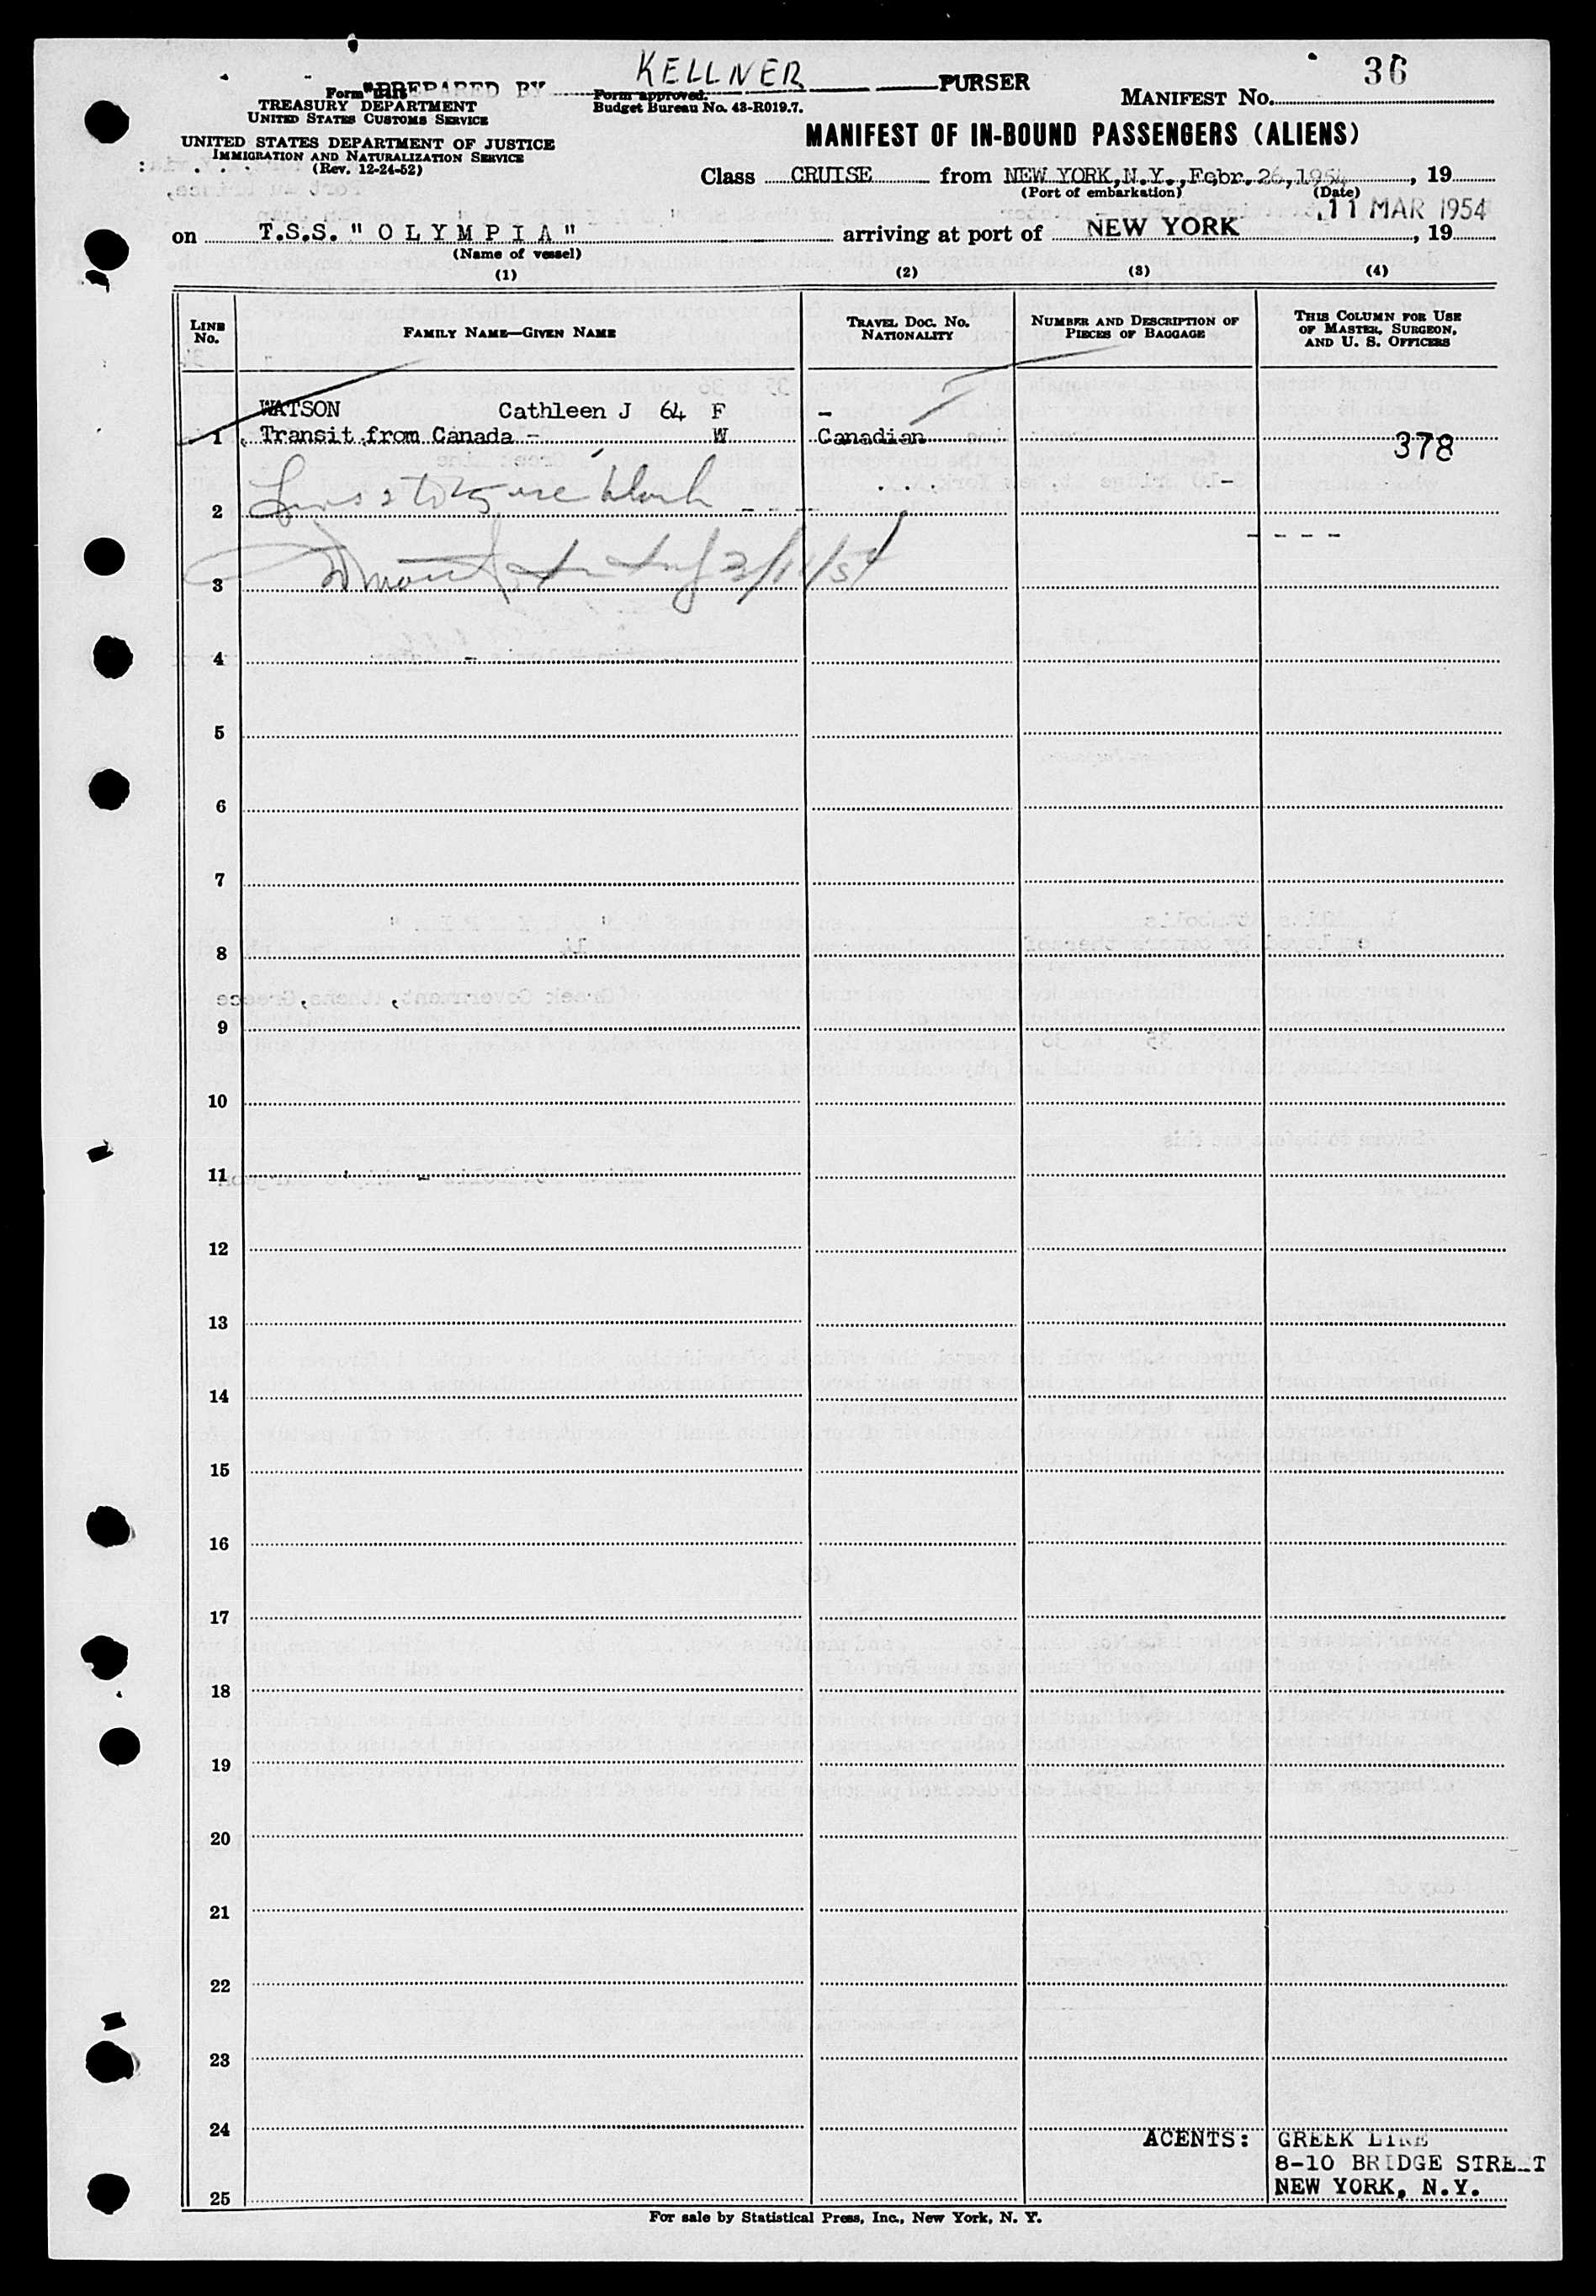 KELLNER
"PREPARED BY PURSER
36
Form approved.
Budget Bureau No. 43-R019.7.
MANIFEST No.
TREASURY DEPARTMENT
UNITED STATES CUSTOMS SERVICE
UNITED STATES DEPARTMENT OF JUSTICE
IMMIGRATION AND NATURALIZATION SERVICE
(Rev. 12-24-52)
MANIFEST OF IN-BOUND PASSENGERS (ALIENS)
Class CRUISE from NEW YORK,N.Y.,Febr. 26,1954, 19
(Port of embarkation) (Date)
11 MAR 1954
on T.S.S. " O L Y M P I A " arriving at port of NEW YORK, 19
(Name of vessel)
(1) (2) (3) (4)
LINE No.
FAMILY NAME—GIVEN NAME
TRAVEL DOC. No. NATIONALITY
NUMBER AND DESCRIPTION OF PIECES OF BAGGAGE
THIS COLUMN FOR USE OF MASTER, SURGEON, AND U. S. OFFICERS
WATSON Cathleen J 64 F -
1 Transit from Canada - W Canadian 378
2
3 3/11/54
4
5
6
7
8
9
10
11
12
13
14
15
16
17
18
19
20
21
22
23
24
AGENTS: GREEK LINE
8-10 BRIDGE STREET
NEW YORK, N.Y.
25
For sale by Statistical Press, Inc., New York, N. Y.